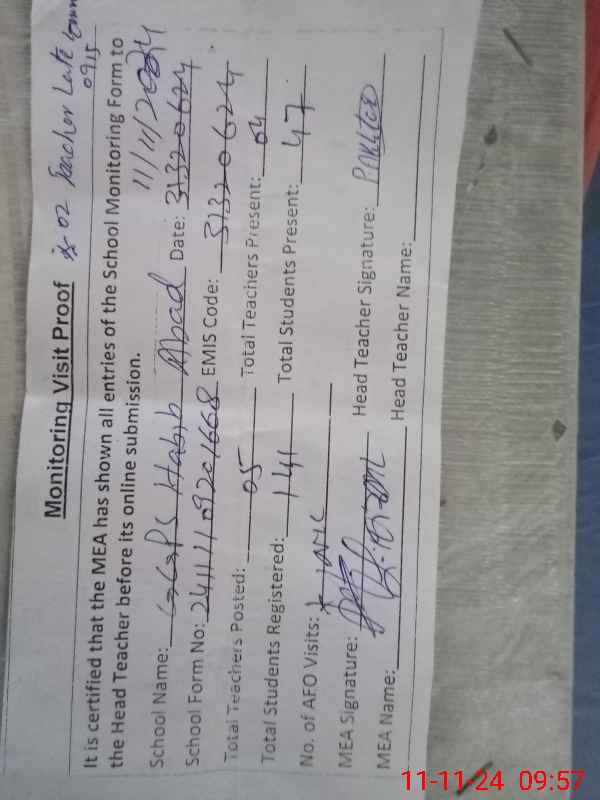 Monitoring Visit Proof
02 Teacher Late
0915
It is certified that the MEA has shown all entries of the School Monitoring Form to
the Head Teacher before its online submission. 11/11/2024
School Name: GGPS Habib Abad Date: 31320624
School Form No: 24111109201668 EMIS Code: 31320624
Total Teachers Posted: 05 Total Teachers Present: 04
Total Students Registered: 141 Total Students Present: 47
No. of AEO Visits:
MEA Signature: Head Teacher Signature:
MEA Name: Head Teacher Name:
11-11-24 09:57